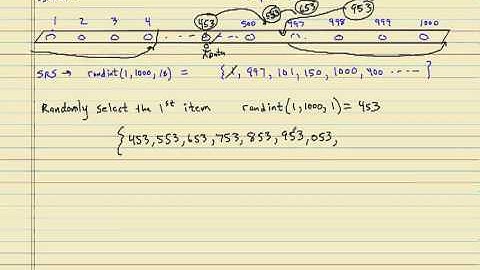 453 553 653 953
1 2 3 4 500 997 998 999 1000
SRS → randint(1,1000,10) = {1, 997, 101, 150, 1000, 400 ····}
Randomly select the 1st item randint(1,1000,1) = 453
{453,553,653,753,853,953,053,